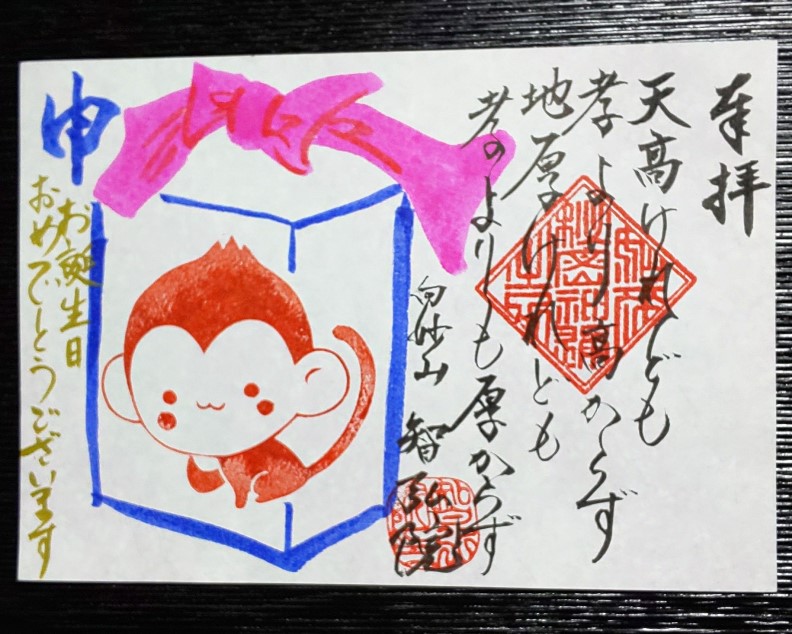 奉拝
天高けれども
孝より高からず
地厚けれども
孝よりも厚からず
白妙山 智弘院
申
お誕生日
おめでとうございます